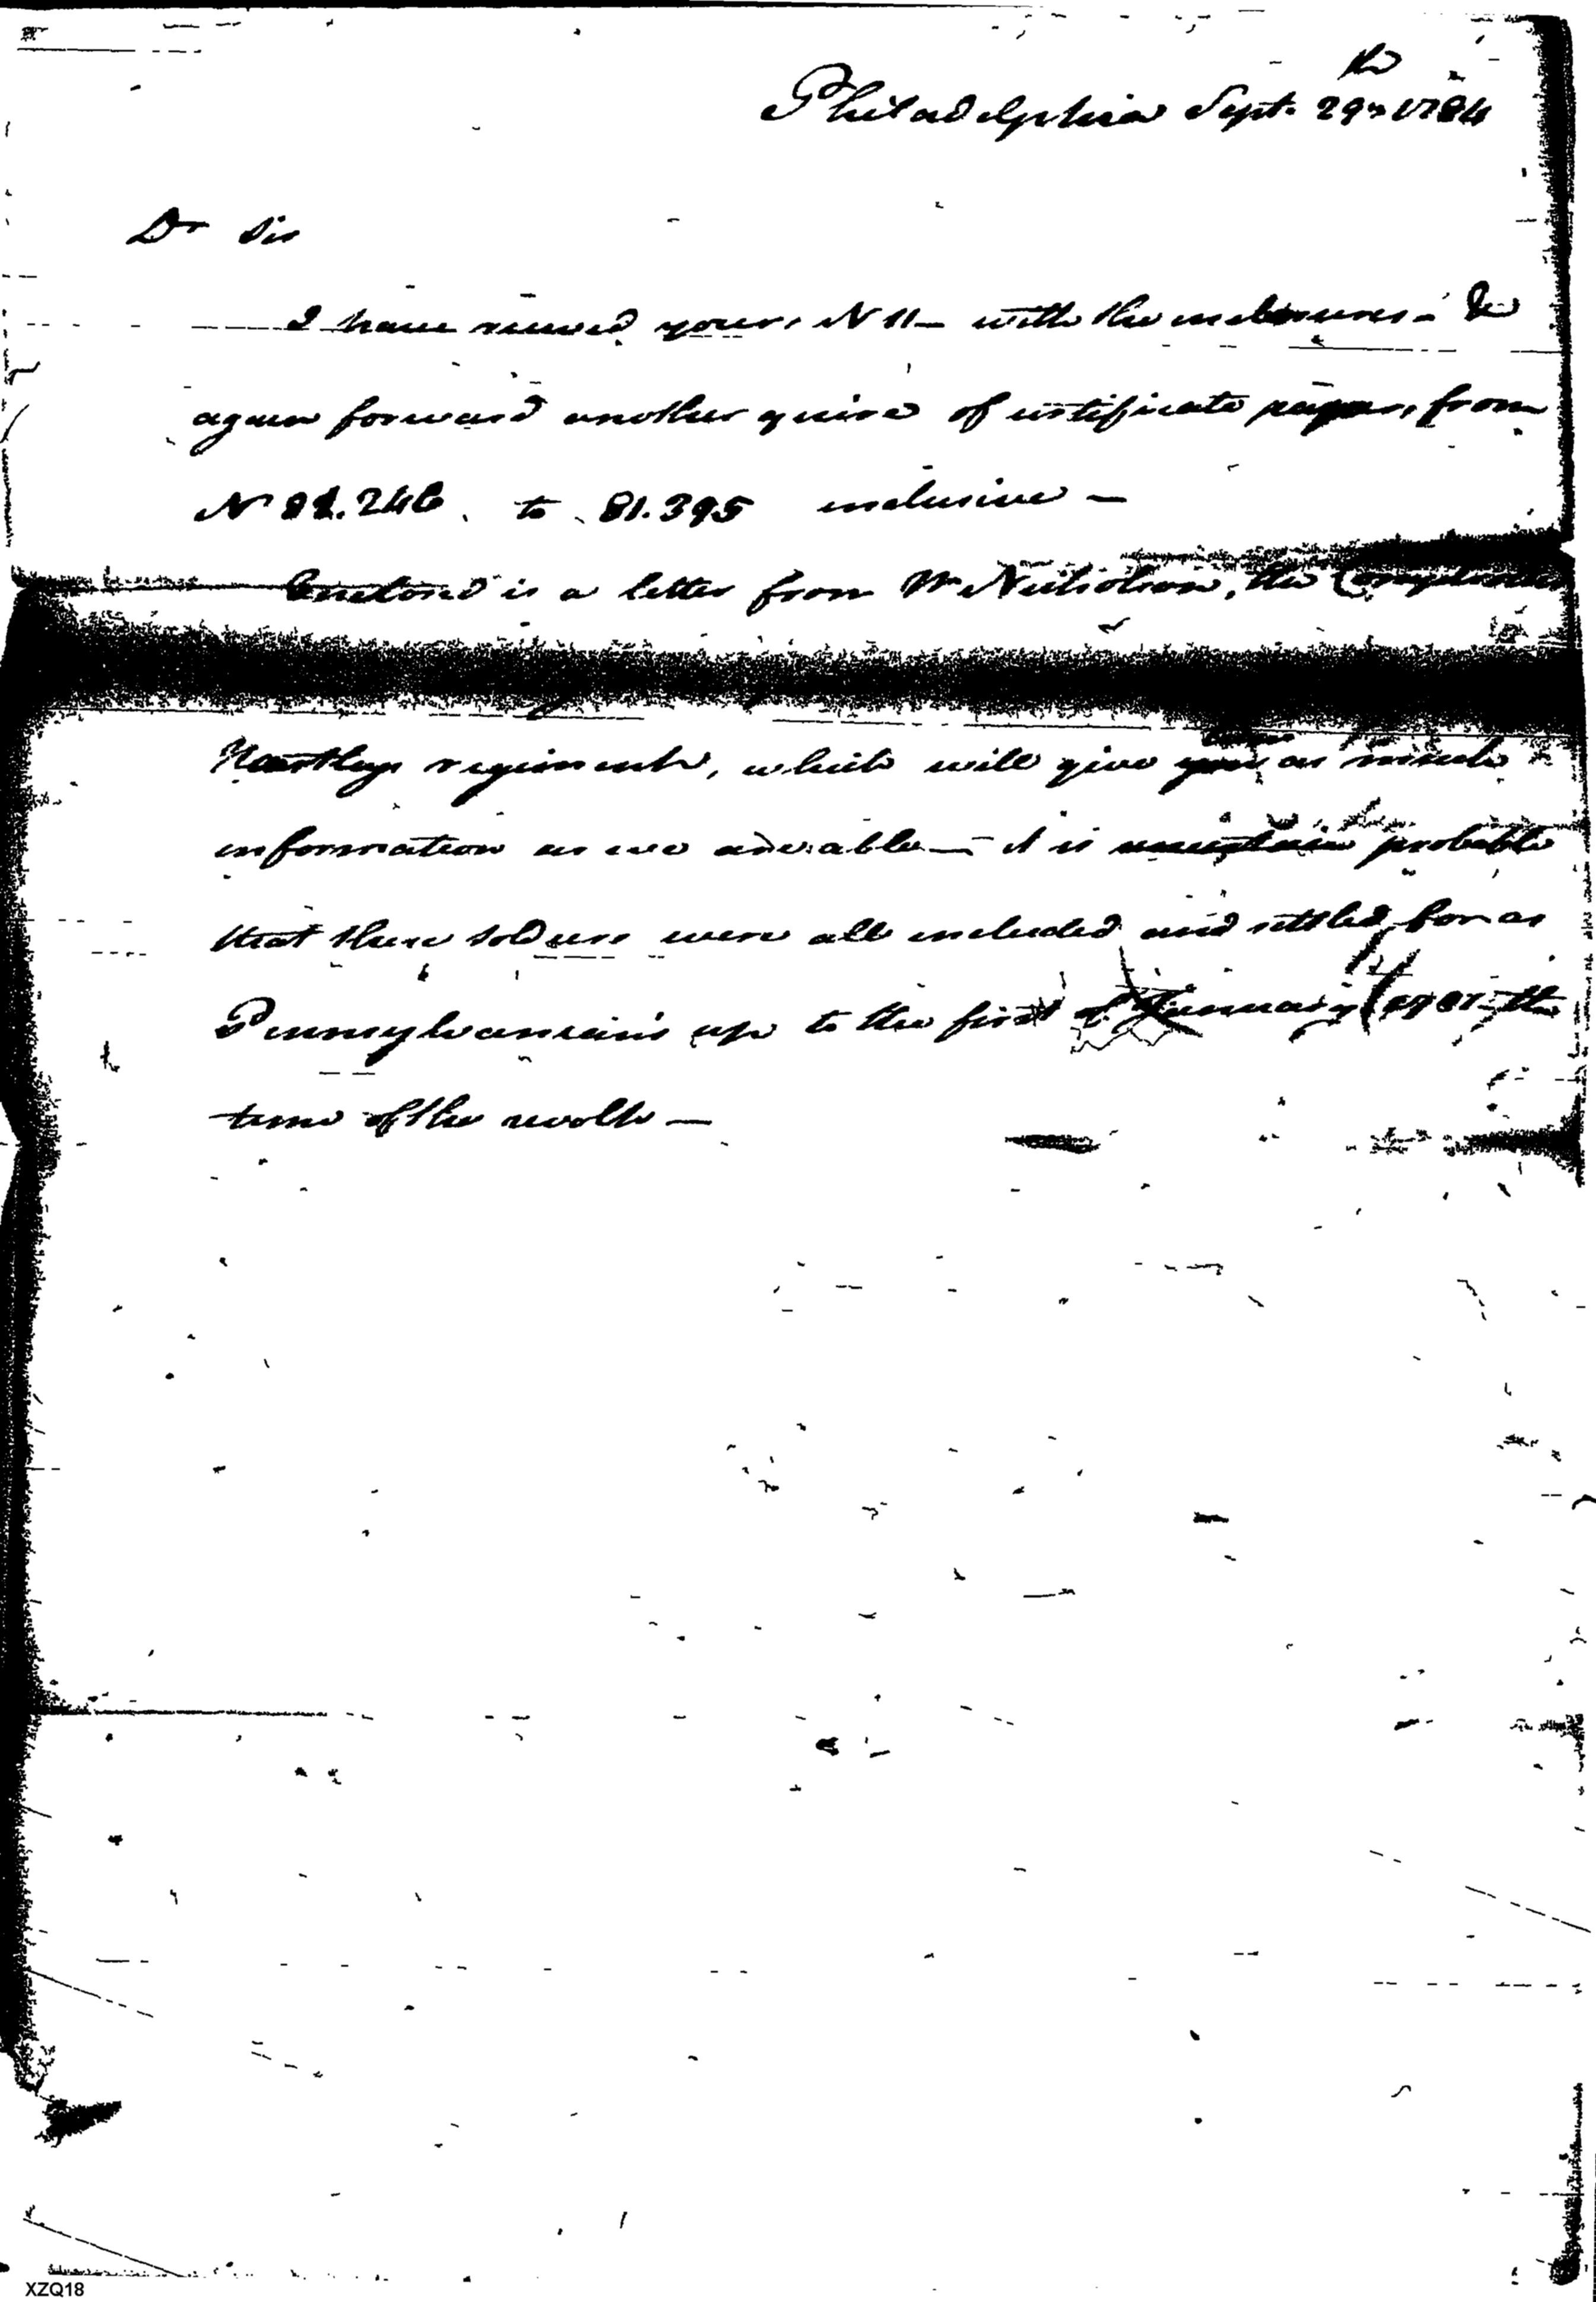 Philadelphia Sept. 29th 1784
Dr Sir
I have received yours N 11 — with the enclosures — &
again forward another quire of certificate paper, from
No 81.246 to 81.395 inclusive —
Enclosed is a letter from Mr Nicholson, the Comptroller
Hartleys regiment, which will give you as much
information as we are able — it is probable
that these soldiers were all included and settled for as
Pennsylvanians up to the first of January 1781 the
time of the revolt —
XZQ18